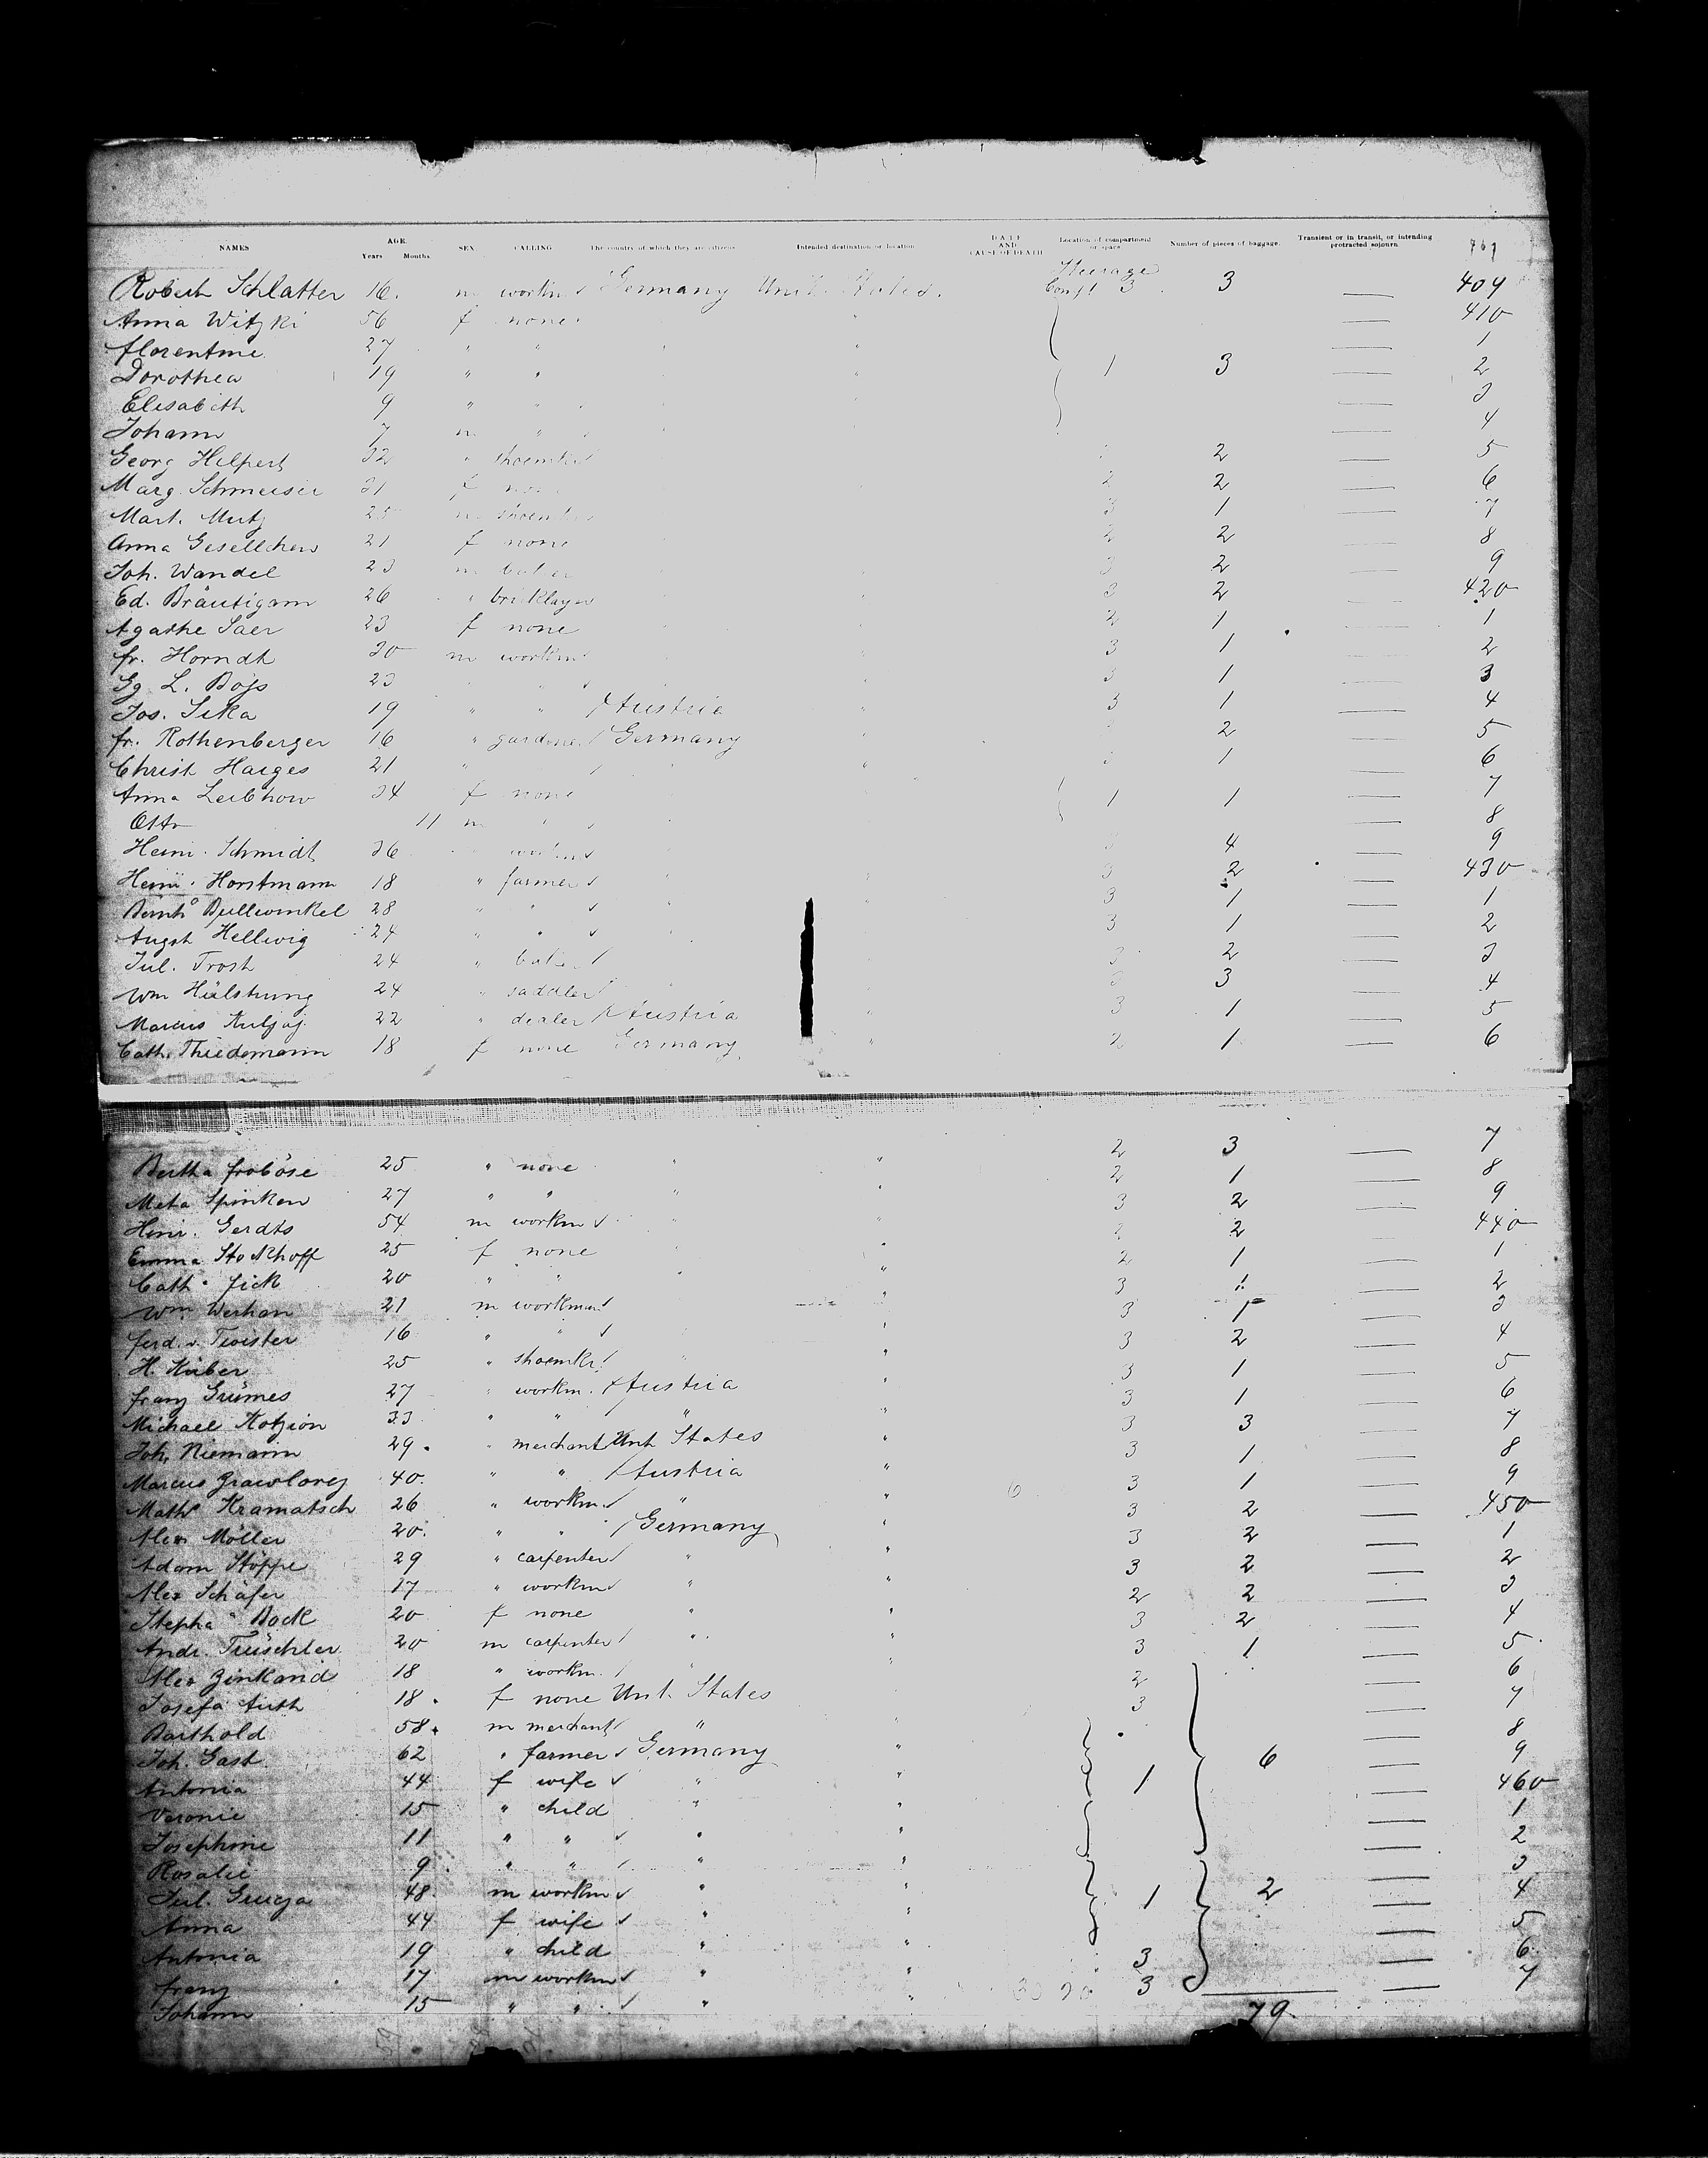 NAMES AGE. Years Months. SEX. CALLING The country of which they are citizens Intended destination or location DATE AND CAUSE OF DEATH Location of compartment or space Number of pieces of baggage. Transient or in transit, or intending protracted sojourn
Robert Schlatter 16. m workm Germany Unit. States. Steerage Compt 3 3 — 409
Anna Witzki 56 f none " — 410
Florentine 27 " " " — 1
Dorothea 19 " " " 1 3 — 2
Elisabeth 9 " " " — 3
Johann 7 m " — 4
Georg Helpert 32 " shoemkr 2 — 5
Marg. Schmeiser 31 f none 2 2 — 6
Mart. Mertz 25 m shoemkr 3 1 — 7
Anna Gesellchen 21 f none 2 2 — 8
Joh. Wandel 23 m baker 3 2 — 9
Ed. Bräutigam 26 " bricklayer 3 2 — 420
Agathe Saer 23 f none 2 1 — 1
Fr. Horndt 30 m workm 3 1 — 2
Gg L. Bojs 23 " " 3 1 — 3
Jos. Sika 19 " " Austria 3 1 — 4
Fr. Rothenberger 16 " gardener Germany 2 — 5
Christ Harges 21 " " 1 — 6
Anna Leibhow 34 f none 1 1 — 7
Otto 11 m " — 8
Heinr. Schmidt 36 " workm 3 4 — 9
Heinr. Horstmann 18 " farmer " 3 2 — 430
Bernhd Bullwinkel 28 " " 3 1 — 1
August Hellwig 24 " " 3 1 — 2
Jul. Trost 24 " baker 3 2 — 3
Wm Hülstrung 24 " saddler 3 3 — 4
Marcus Kuljaj 22 " dealer Austria 3 1 — 5
Cath. Thiedemann 18 f none Germany " 2 1 — 6
Bertha Froböse 25 " none " " 2 3 — 7
Meta Spinken 27 " " " " 2 1 — 8
Heinr. Gerdts 54 m workm " " 3 2 — 9
Emma Stockhoff 25 f none " " 2 2 — 440
Cath. Fick 20 " " " " 2 1 — 1
Wm. Werhan 21 m workman " 3 1 — 2
Ferd. v. Twister 16 " " " 3 1 — 3
H. Küber 25 " shoemkr " " 3 2 — 4
Franz Grümes 27 " workm. Austria " 3 1 — 5
Michael Kotzion 33 " " " " 3 1 — 6
Joh. Niemann 29. " merchant Unit States " 3 3 — 7
Marcus 40. " " Austria " 3 1 — 8
Mathr Kramatsch 26 " workm. " " 3 1 — 9
Alex Möller 20. " " Germany " 3 2 — 450
Adam Stöppe 29 " carpenter " " 3 2 — 1
Alex Schäfer 17 " workm " " 3 2 — 2
Stepha Bock 20 f none " " 2 2 — 3
Andr. Treuschler 20 m carpenter " " 3 2 — 4
Alex Zinkand 18 " workm. " " 3 1 — 5.
Josefa Auth 18. f none Unit. States 2 — 6
Barthold 58. m merchant " " 3 — 7
Joh. Gast 62 " farmer Germany " 6 — 8
Antonia 44 f wife " " 1 — 9
Veronie 15 " child " " — 460
Josephine 11 " " " " — 1
Rosalie 9 " " " " — 2
Jul. 48 m workm " " 1 2 — 3
Anna 44 f wife " " — 4
Antonia 19 " child " " — 5
Franz 17 m workm " " 3 — 6
Johann 15 " " " " 3 — 7
79.